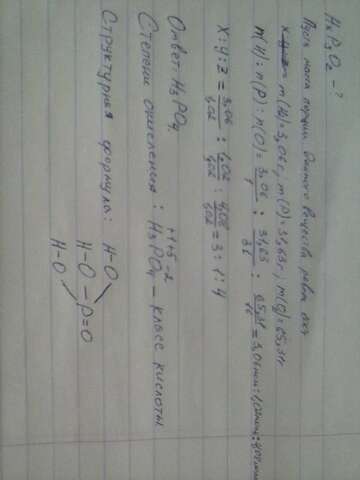 HxPyOz - ?
Пусть масса порции данного вещества равна 100г
m(H)=3,06г, m(P)=31,63г, m(O)=65,31г
n(H):n(P):n(O)=3,06/1 : 31,63/31 : 65,31/16 = 3,06моль:1,02моль:4,08моль
x:y:z = 3,06/1,02 : 1,02/1,02 : 4,08/1,02 = 3:1:4
Ответ: H3PO4.
+1 +5 -2
Степени окисления: H3PO4 – класс кислоты
Структурная формула: H-O
H-O-P=O
H-O